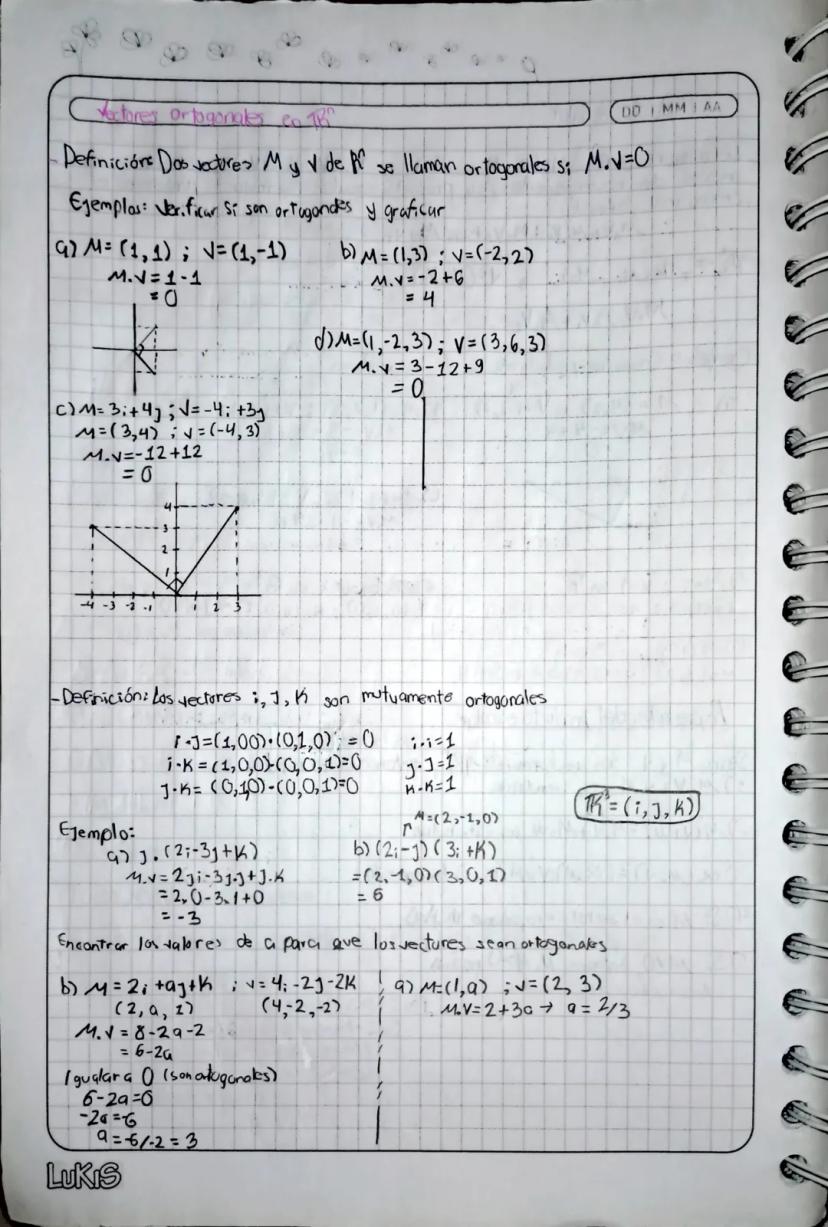 Vectores Ortogonales en ℝⁿ
DD | MM | AA
- Definición: Dos vectores M y V de ℝⁿ se llaman ortogonales si M.V=0
Ejemplos: Verificar si son ortogonales y graficar
a) M=(1,1) ; V=(1,-1)
M.V=1-1
=0
b) M=(1,3) ; V=(-2,2)
M.V=-2+6
=4
d) M=(1,-2,3) ; V=(3,6,3)
M.V=3-12+9
=0
c) M=3i+4j ; V=-4i+3j
M=(3,4) ; V=(-4,3)
M.V=-12+12
=0
4
3
2
1
-4 -3 -2 -1 1 2 3
- Definición: Los vectores i, J, K son mutuamente ortogonales
i·J=(1,00)·(0,1,0) =0 i·i=1
i·K=(1,0,0)·(0,0,1)=0 J·J=1
J·K=(0,10)·(0,0,1)=0 K·K=1
ℝ³=(i,J,K)
Ejemplo:
M=(2,-1,0)
a) J.(2i-3J+K)
M.V=2Ji-3J.J+J.K
=2,0-3.1+0
=-3
b) (2i-J)(3i+K)
=(2,-1,0)(3,0,1)
=6
Encontrar los valores de a para que los vectores sean ortogonales
b) M=2i+aJ+K ; V=4i-2J-2K
(2,a,1) (4,-2,-2)
M.V=8-2a-2
=6-2a
Igualar a 0 (son ortogonales)
6-2a=0
-2a=-6
a=-6/-2=3
a) M=(1,a) ; V=(2,3)
M.V=2+3a → a=2/3
LUKIS